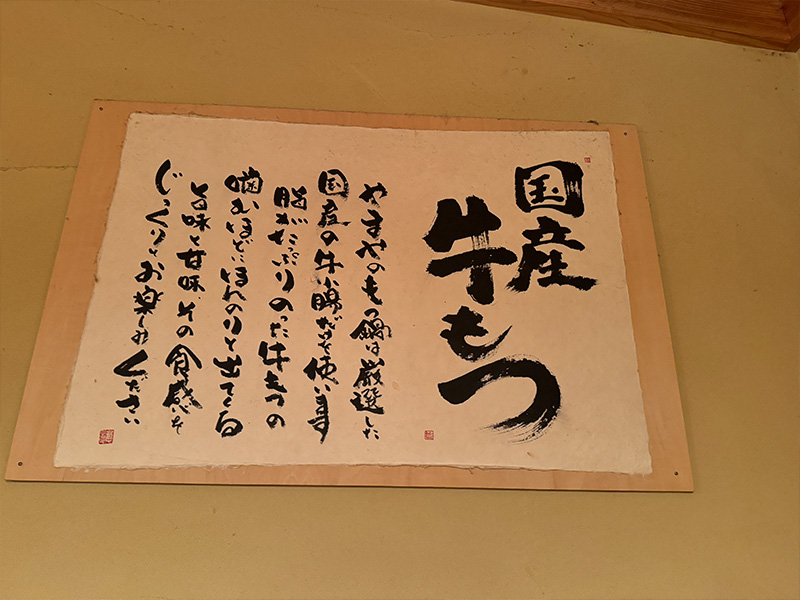 国産
牛もつ
やまやのもつ鍋は厳選した
国産の牛小腸だけを使います
脂がたっぷりのった牛もつの
噛むほどにほんのりと出てくる
旨味と甘味、その食感を
じっくりとお楽しみください